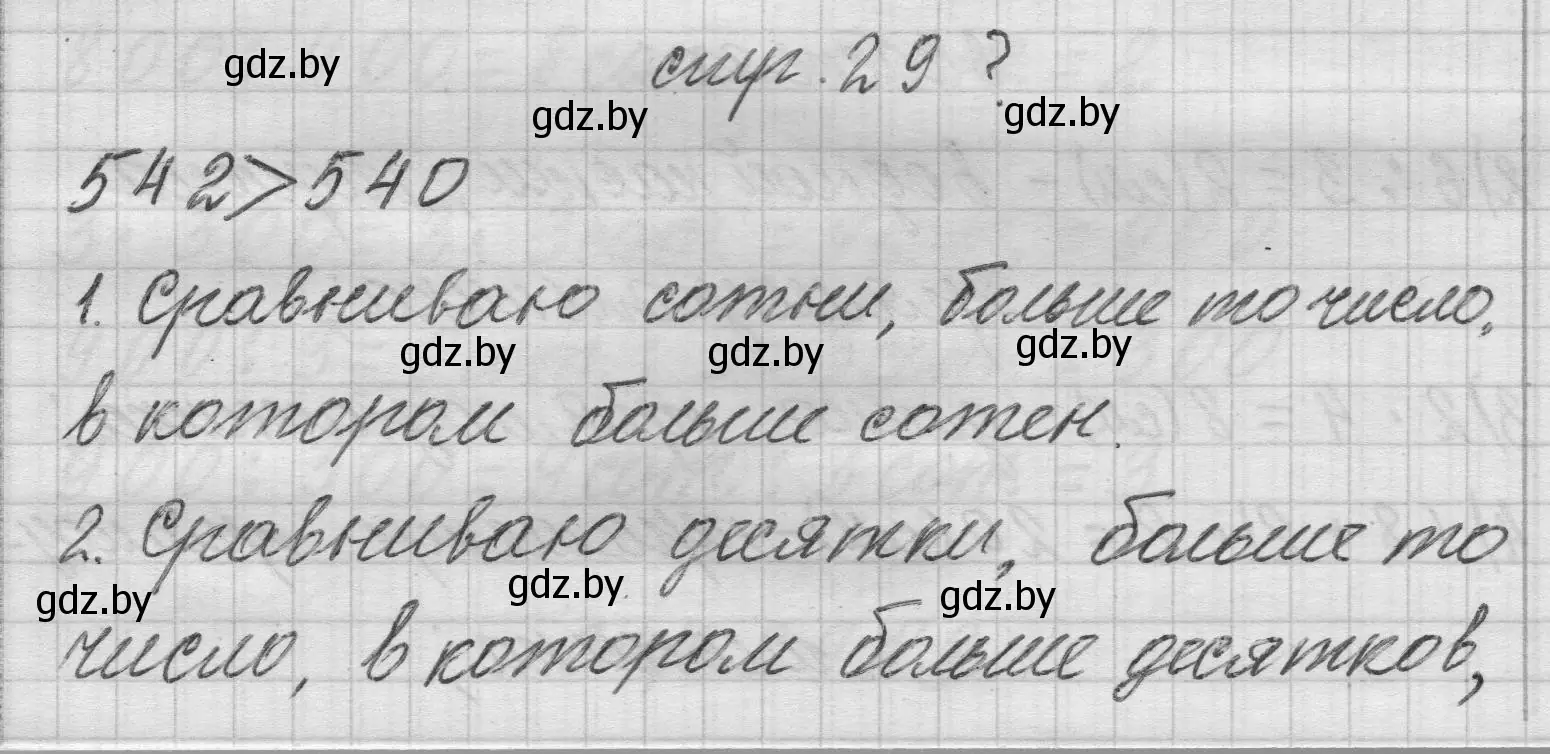 стр. 29 ?
gdz.by
gdz.by
gdz.by
542>540
1. Сравниваю сотни, больше то число,
gdz.by
gdz.by
gdz.by
в котором больше сотен.
2. Сравниваю десятки, больше то
gdz.by
gdz.by
gdz.by
число, в котором больше десятков,